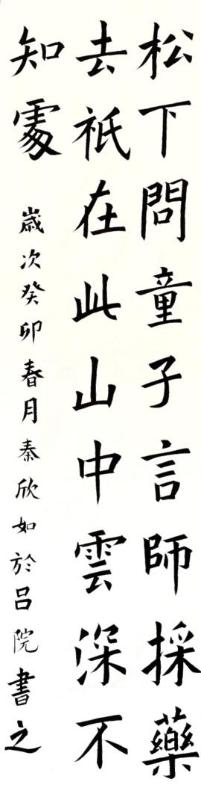 松下問童子言師採藥
去祇在此山中雲深不
知處
歲次癸卯春月秦欣如於呂院書之